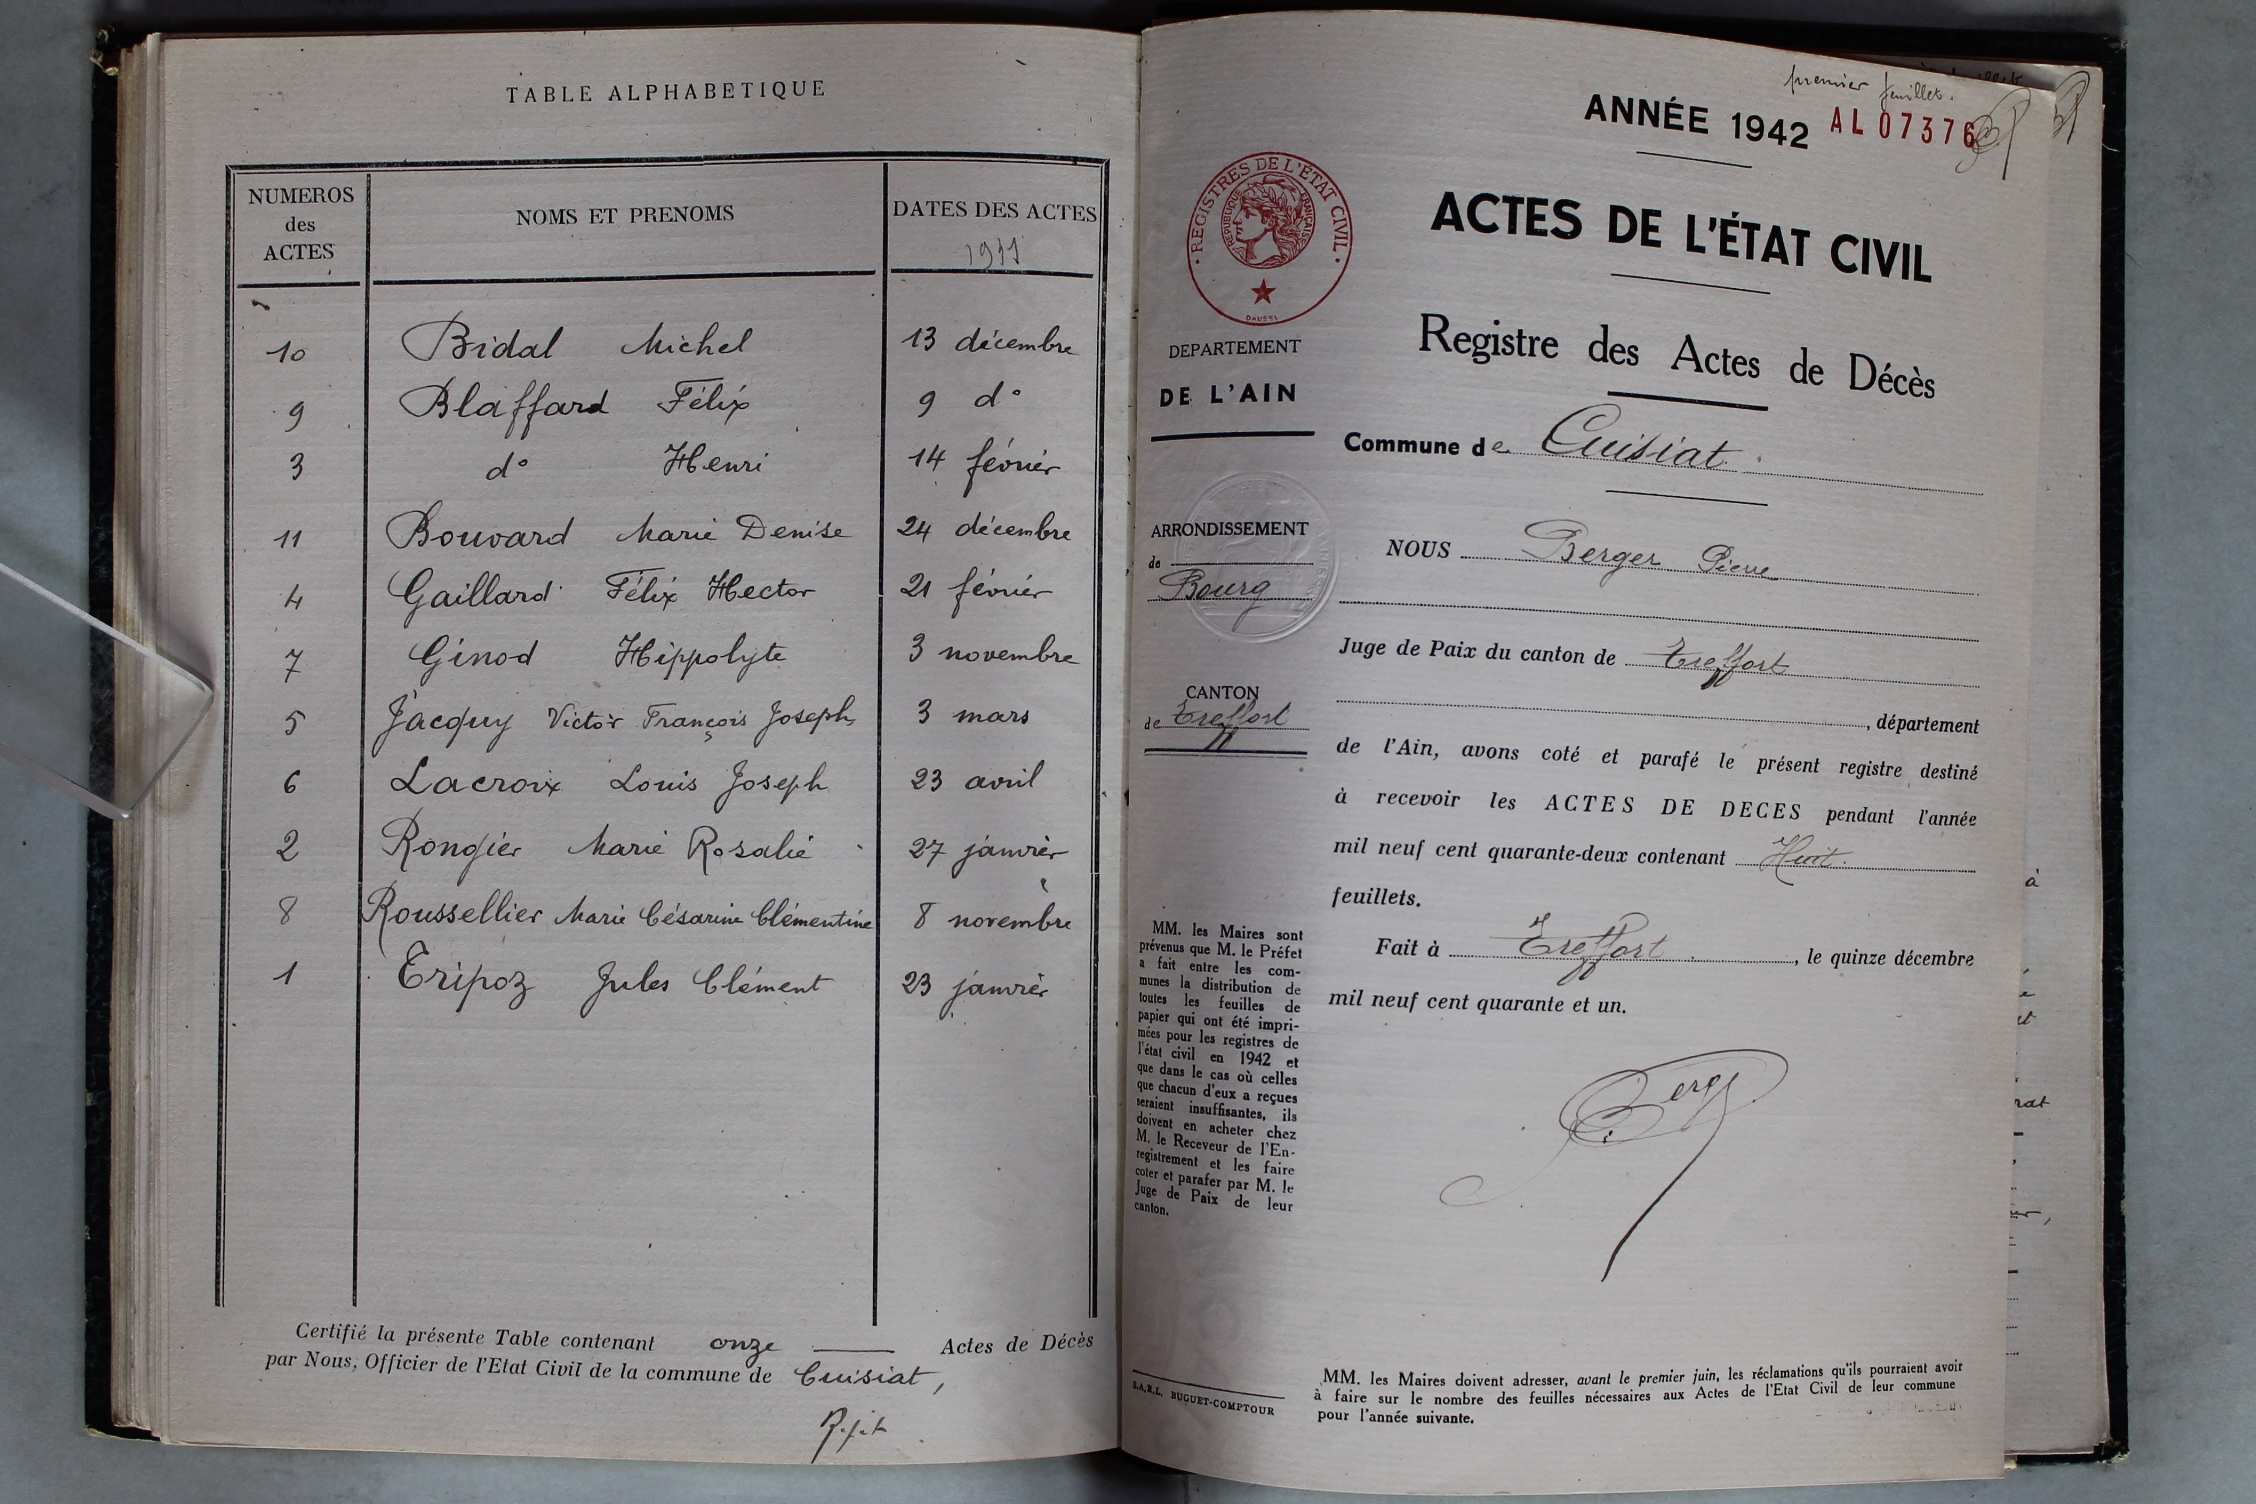 TABLE ALPHABETIQUE
NUMEROS
des
ACTES
NOMS ET PRENOMS
DATES DES ACTES
1941
10 Bidal Michel 13 décembre
9 Blaffard Félix 9 d°
3 d° Henri 14 février
11 Bouvard Marie Denise 24 décembre
4 Gaillard Félix Hector 21 février
7 Ginod Hippolyte 3 novembre
5 Jacquy Victor François Joseph 3 mars
6 Lacroix Louis Joseph 23 avril
2 Rongier Marie Rosalie 27 janvier
8 Roussellier Marie Césarine Clémentine 8 novembre
1 Tripoz Jules Clément 23 janvier
Certifié la présente Table contenant onze Actes de Décès
par Nous, Officier de l'Etat Civil de la commune de Cuisiat,
premier feuillet.
ANNÉE 1942 AL 07376
REGISTRES DE L'ETAT CIVIL
REPUBLIQUE FRANÇAISE
ACTES DE L'ÉTAT CIVIL
Registre des Actes de Décès
DEPARTEMENT
DE L'AIN
Commune de Cuisiat
ARRONDISSEMENT
de
Bourg
NOUS Berger Pierre
Juge de Paix du canton de Treffort
CANTON
de Treffort
, département
de l'Ain, avons coté et parafé le présent registre destiné
à recevoir les ACTES DE DECES pendant l'année
mil neuf cent quarante-deux contenant Huit
feuillets.
Fait à Treffort, le quinze décembre
mil neuf cent quarante et un.
MM. les Maires sont
prévenus que M. le Préfet
a fait entre les com-
munes la distribution de
toutes les feuilles de
papier qui ont été impri-
mées pour les registres de
l'état civil en 1942 et
que dans le cas où celles
que chacun d'eux a reçues
seraient insuffisantes, ils
doivent en acheter chez
M. le Receveur de l'En-
registrement et les faire
coter et parafer par M. le
Juge de Paix de leur
canton.
S.A.R.L. BUGUET-COMPTOUR
MM. les Maires doivent adresser, avant le premier juin, les réclamations qu'ils pourraient avoir
à faire sur le nombre des feuilles nécessaires aux Actes de l'Etat Civil de leur commune
pour l'année suivante.